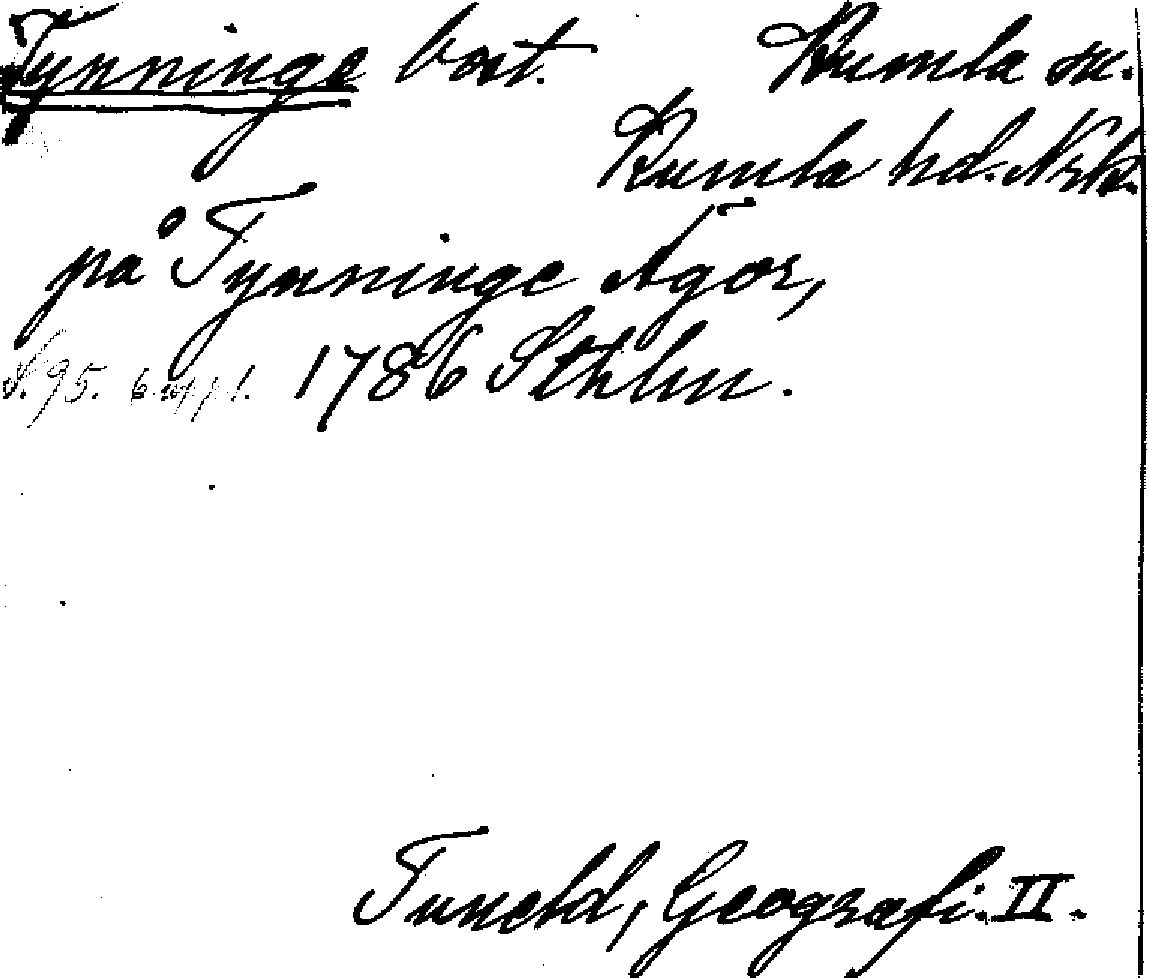 Tynninge bost. Kumla sn.
Kumla hd. Nrk.
på Tynninge Ägor,
S. 95. 6. uppl. 1786 Sthlm.
Tuneld, Geografi. II.